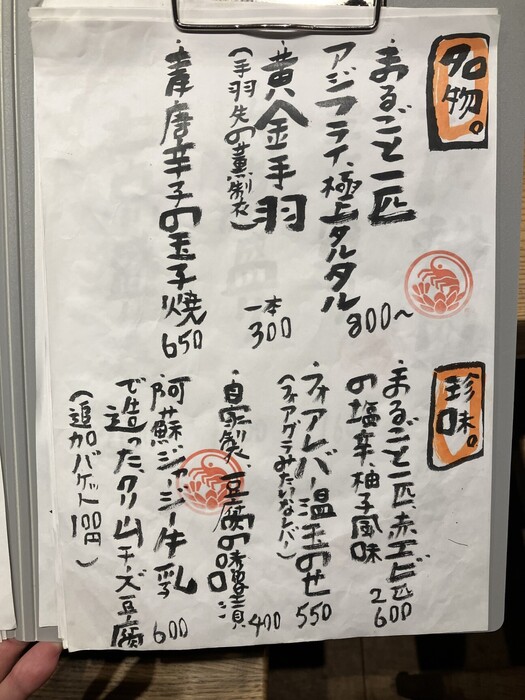 名物。
・まるごと一匹
アジフライ、極上タルタル
800〜
・黄金手羽
(手羽先の薫製)
一本
300
・青唐辛子の玉子焼
650
珍味。
・まるごと一匹、赤エビ
の塩辛、柚子風味
2匹
600
・フォアレバー温玉のせ
(フォアグラみたいなレバー)
550
・自家製、豆腐の味噌漬
400
・阿蘇ジャージー牛乳
で造った、クリームチーズ豆腐
600
(追加バケット100円)